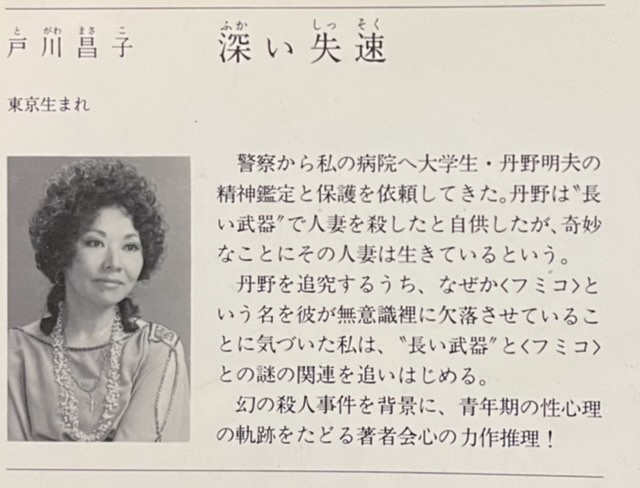 とがわまさこ
戸川昌子
ふかしっそく
深い失速
東京生まれ
警察から私の病院へ大学生・丹野明夫の
精神鑑定と保護を依頼してきた。丹野は〝長
い武器〟で人妻を殺したと自供したが、奇妙
なことにその人妻は生きているという。
丹野を追究するうち、なぜか〈フミコ〉と
いう名を彼が無意識裡に欠落させているこ
とに気づいた私は、〝長い武器〟と〈フミコ〉
との謎の関連を追いはじめる。
幻の殺人事件を背景に、青年期の性心理
の軌跡をたどる著者会心の力作推理!